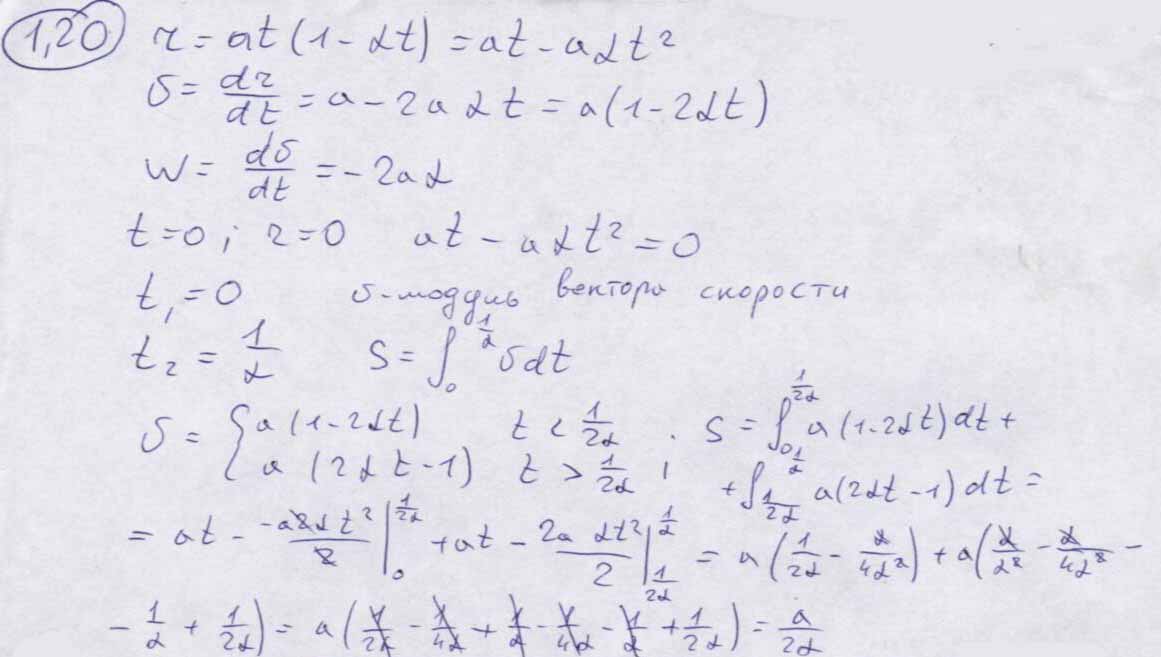 1,20 r = at(1-αt) = at - aαt²
v = dr/dt = a - 2aαt = a(1-2αt)
w = dv/dt = -2aα
t=0; r=0 at - aαt² = 0
t₁=0 v-модуль вектора скорости
t₂ = 1/α S = ∫₀^(1/α) v dt
v = { a(1-2αt) t < 1/2α ; S = ∫₀^(1/2α) a(1-2αt)dt +
a(2αt-1) t > 1/2α ; + ∫_(1/2α)^(1/α) a(2αt-1)dt =
= at - -a2αt²/2 |₀^(1/2α) + at - 2aαt²/2 |_(1/2α)^(1/α) = a(1/2α - α/4α²) + a(α/α² - α/4α² -
- 1/α + 1/2α) = a(1/2α - 1/4α + 1/α - 1/4α - 1/α + 1/2α) = a/2α